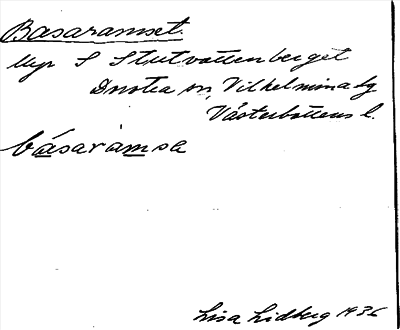 Basaramset.
Myr S Stutvattenberget
Dorotea sn, Vilhelmina tg
Västerbottens l.
båsaramsa
Lisa Lidberg 1936